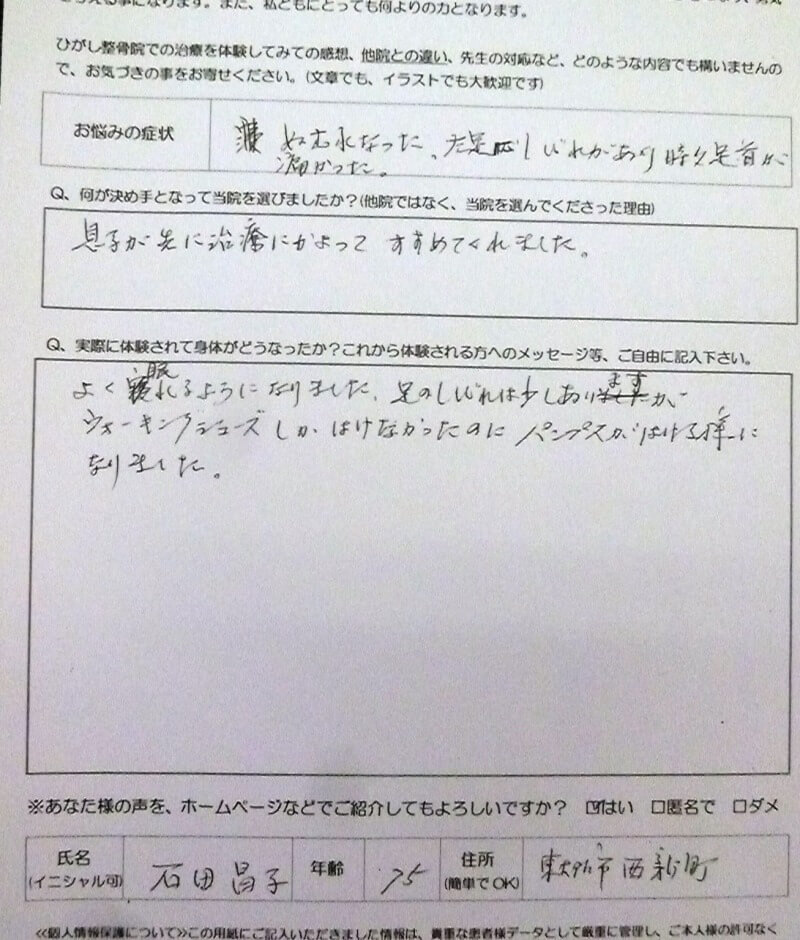 事になります。また、私どもにとっても何よりの力となります。
ひがし整骨院での治療を体験してみての感想、他院との違い、先生の対応など、どのような内容でも構いませんの
で、お気づきの事をお寄せください。(文章でも、イラストでも大歓迎です)
お悩みの症状
なった、左足しびれがあり時々足首が
痛かった。
Q、何が決め手となって当院を選びましたか？(他院ではなく、当院を選んでくださった理由)
息子が先に治療にかよって すすめてくれました。
Q、実際に体験されて身体がどうなったか？これから体験される方へのメッセージ等、ご自由に記入下さい。
よく眠れるようになりました、足のしびれは少しありますが
ウォーキングシューズしかはけなかったのに パンプスがはける様に
なりました。
※あなた様の声を、ホームページなどでご紹介してもよろしいですか？ ☑はい ☐匿名で ☐ダメ
氏名 (イニシャル可) 石田昌子 年齢 75 住所 (簡単でOK) 東大阪市西新町
≪個人情報保護について≫この用紙にご記入いただきました情報は、貴重な患者様データとして厳重に管理し、ご本人様の許可なく